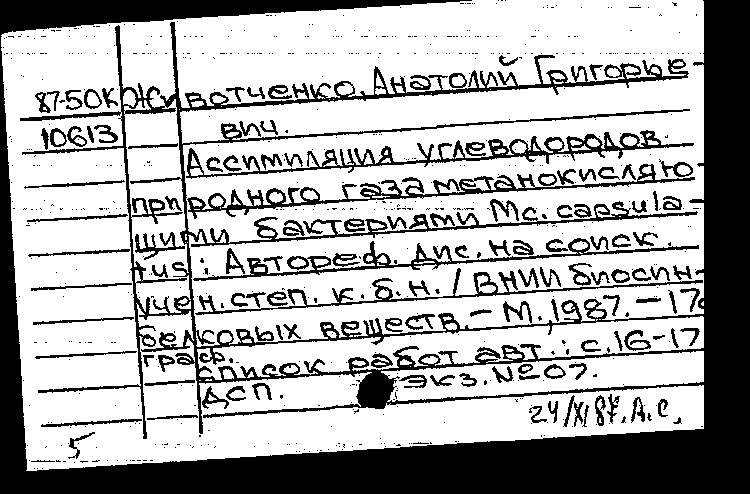 87-50К Животченко, Анатолий Григорье-
10613 вич.
Ассимиляция углеводородов
природного газа метанокисляю-
щими бактериями Mc. capsula-
tus : Автореф. дис. на соиск.
учен. степ. к. б. н. / ВНИИ биосин-
белковых веществ. – М., 1987. – 17с
граф.
Список работ авт.: с. 16-17
ДСП. Экз. № 07.
24/XI 87. А.С.
5